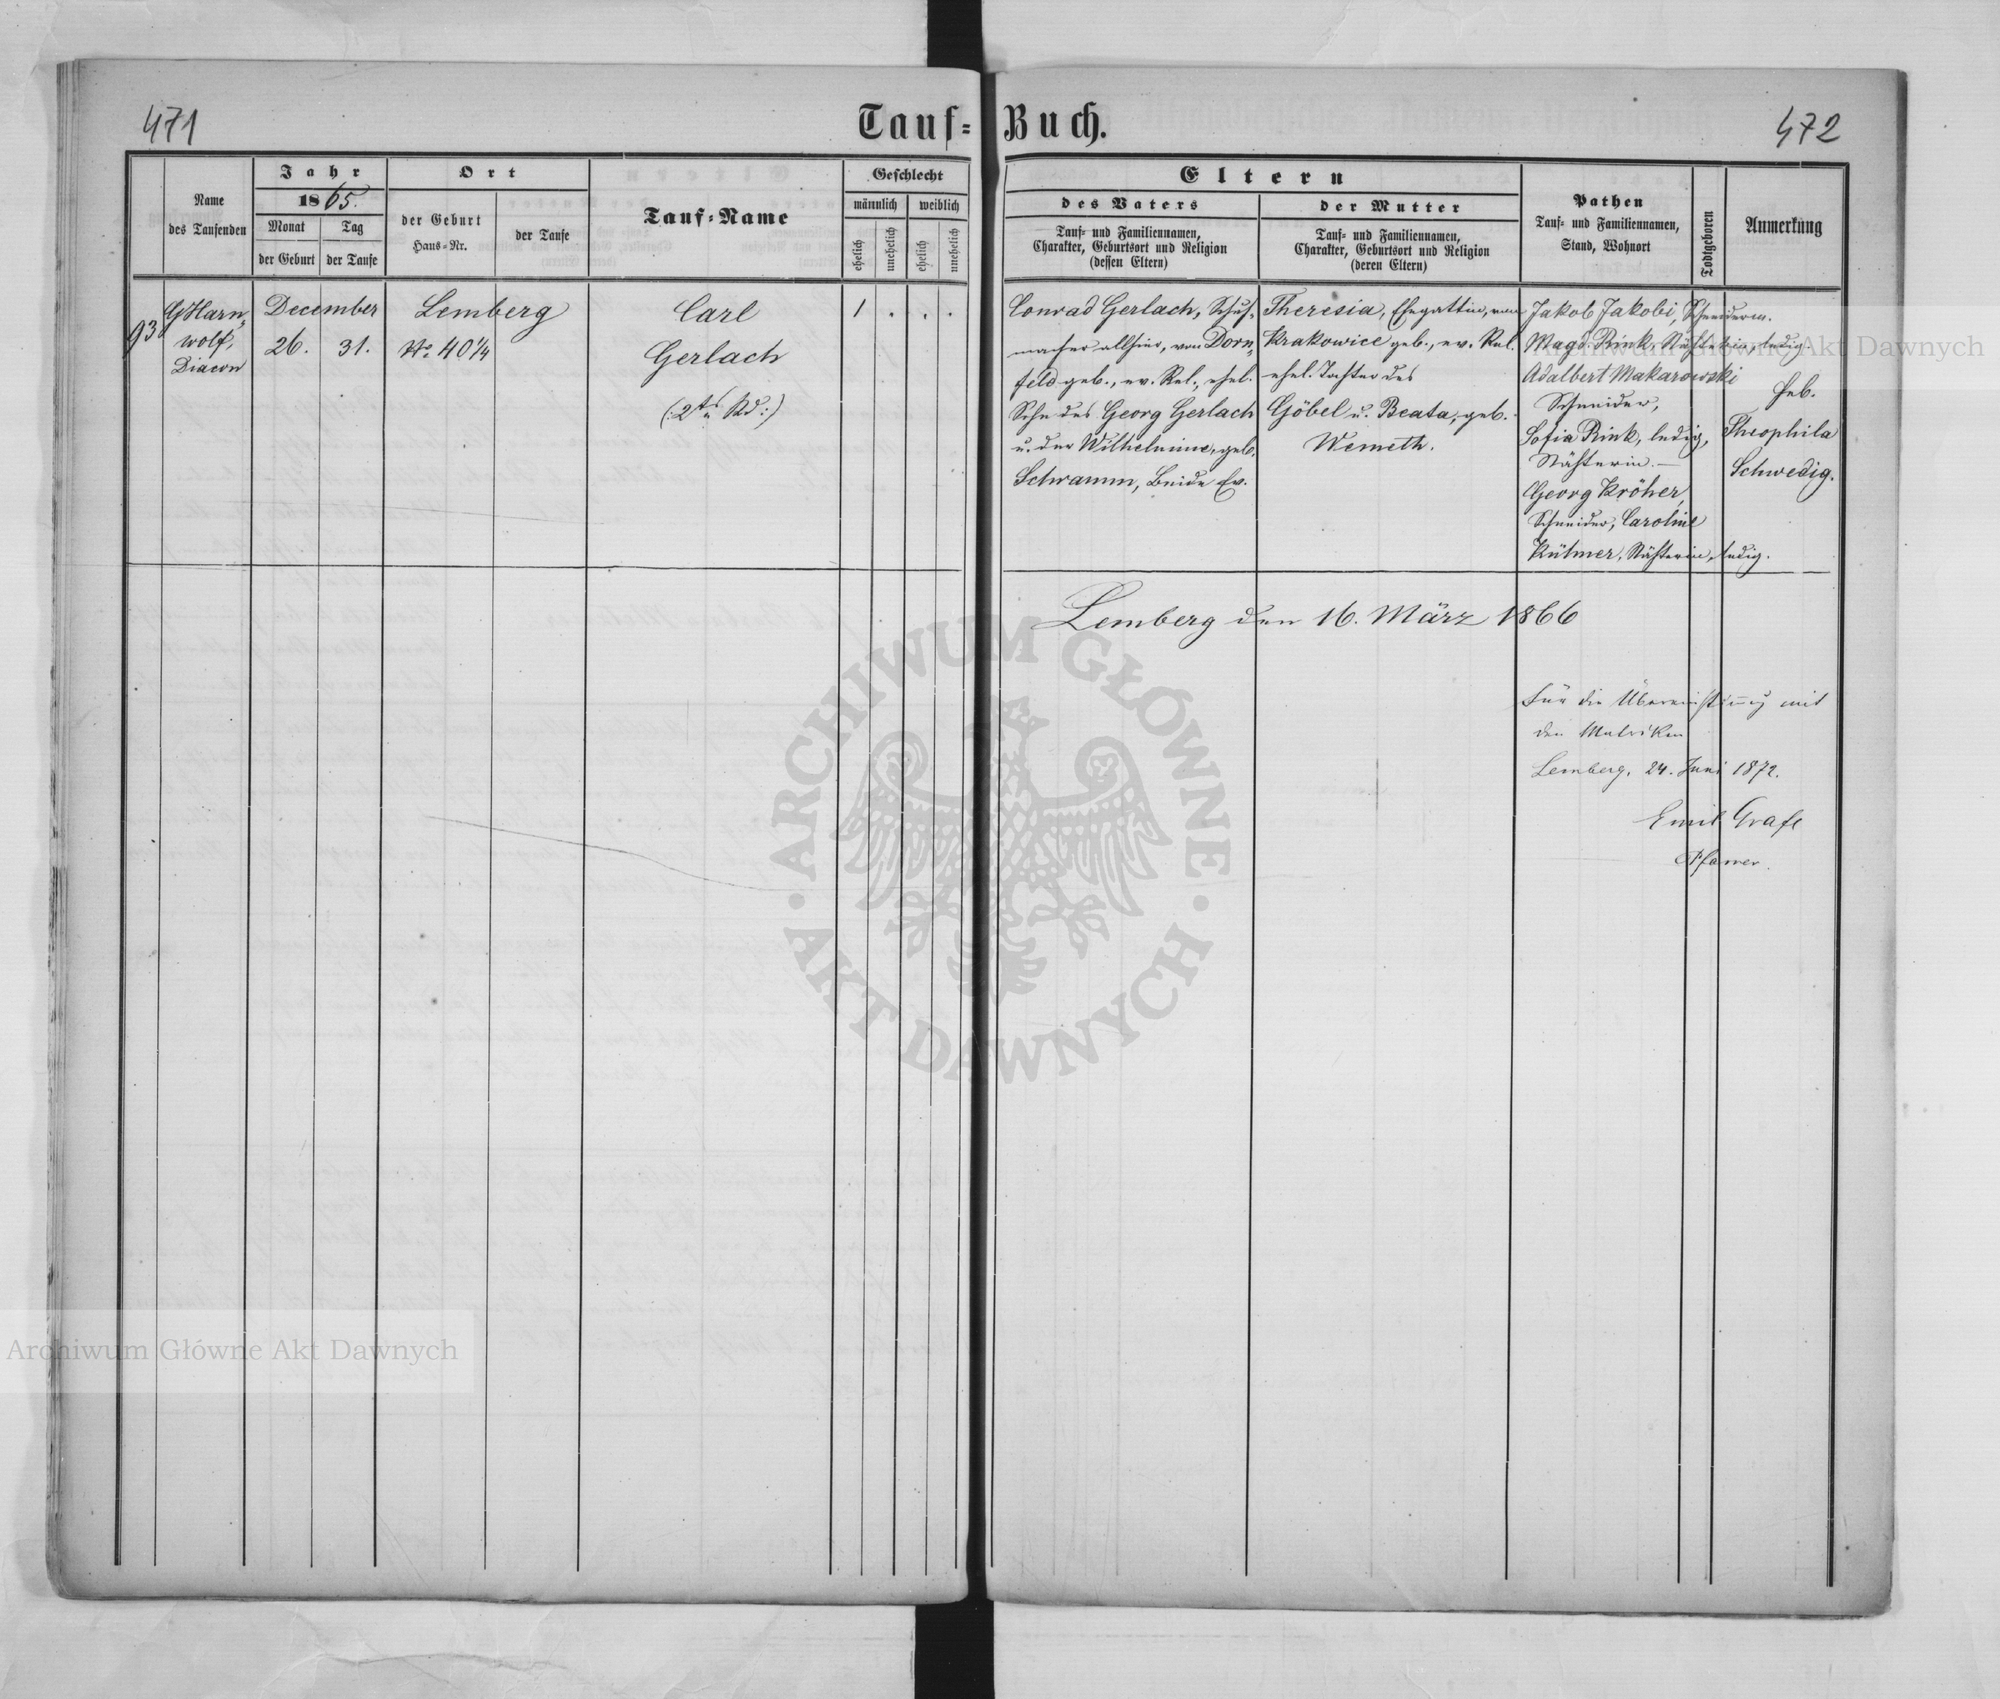 471
Tauf=
Buch.
472
Name
des Taufenden
Jahr
1865.
Monat
der Geburt
Tag
der Taufe
Ort
der Geburt
Haus=Nr.
der Taufe
Tauf=Name
Geschlecht
männlich
weiblich
ehelich
unehelich
ehelich
unehelich
Eltern
des Vaters
Tauf= und Familiennamen,
Charakter, Geburtsort und Religion
(dessen Eltern)
der Mutter
Tauf= und Familiennamen,
Charakter, Geburtsort und Religion
(deren Eltern)
Pathen
Tauf= und Familiennamen,
Stand, Wohnort
Todtgeboren
Anmerkung
93
wolf,
Diacon
December
26. 31.
Lemberg
No. 40 1/4
Carl
Gerlach
(: 2tes Kd :)
1 . . .
Conrad Gerlach, Schuh-
macher allhier, von Dorn-
feld geb., ev. Rel., ehel.
Sohn des Georg Gerlach
u. der Wilhelmine, geb.
Schramm, Beide Ev.
Theresia, Ehegattin, von
Krakowice geb., ev. Rel.
ehel. Tochter des
Göbel u. Beata, geb.
Wemeth.
Jakob Jakobi, Schneiderm.
Magd. Rink, Näherin, ledig.
Adalbert Makarowski
Schneider,
Sofia Rink, ledig,
Näherin. —
Georg Kröher,
Schneider, Caroline
Külmer, Näherin, ledig.
Heb.
Theophila
Schwedig.
Lemberg den 16. März 1866
Für die Übereinstimmung mit
den Matriken
Lemberg, 24. Juni 1872.
Emil Grafl
Pfarrer.
Archiwum Główne Akt Dawnych
ARCHIWUM GŁÓWNE
· AKT DAWNYCH ·
Archiwum Główne Akt Dawnych